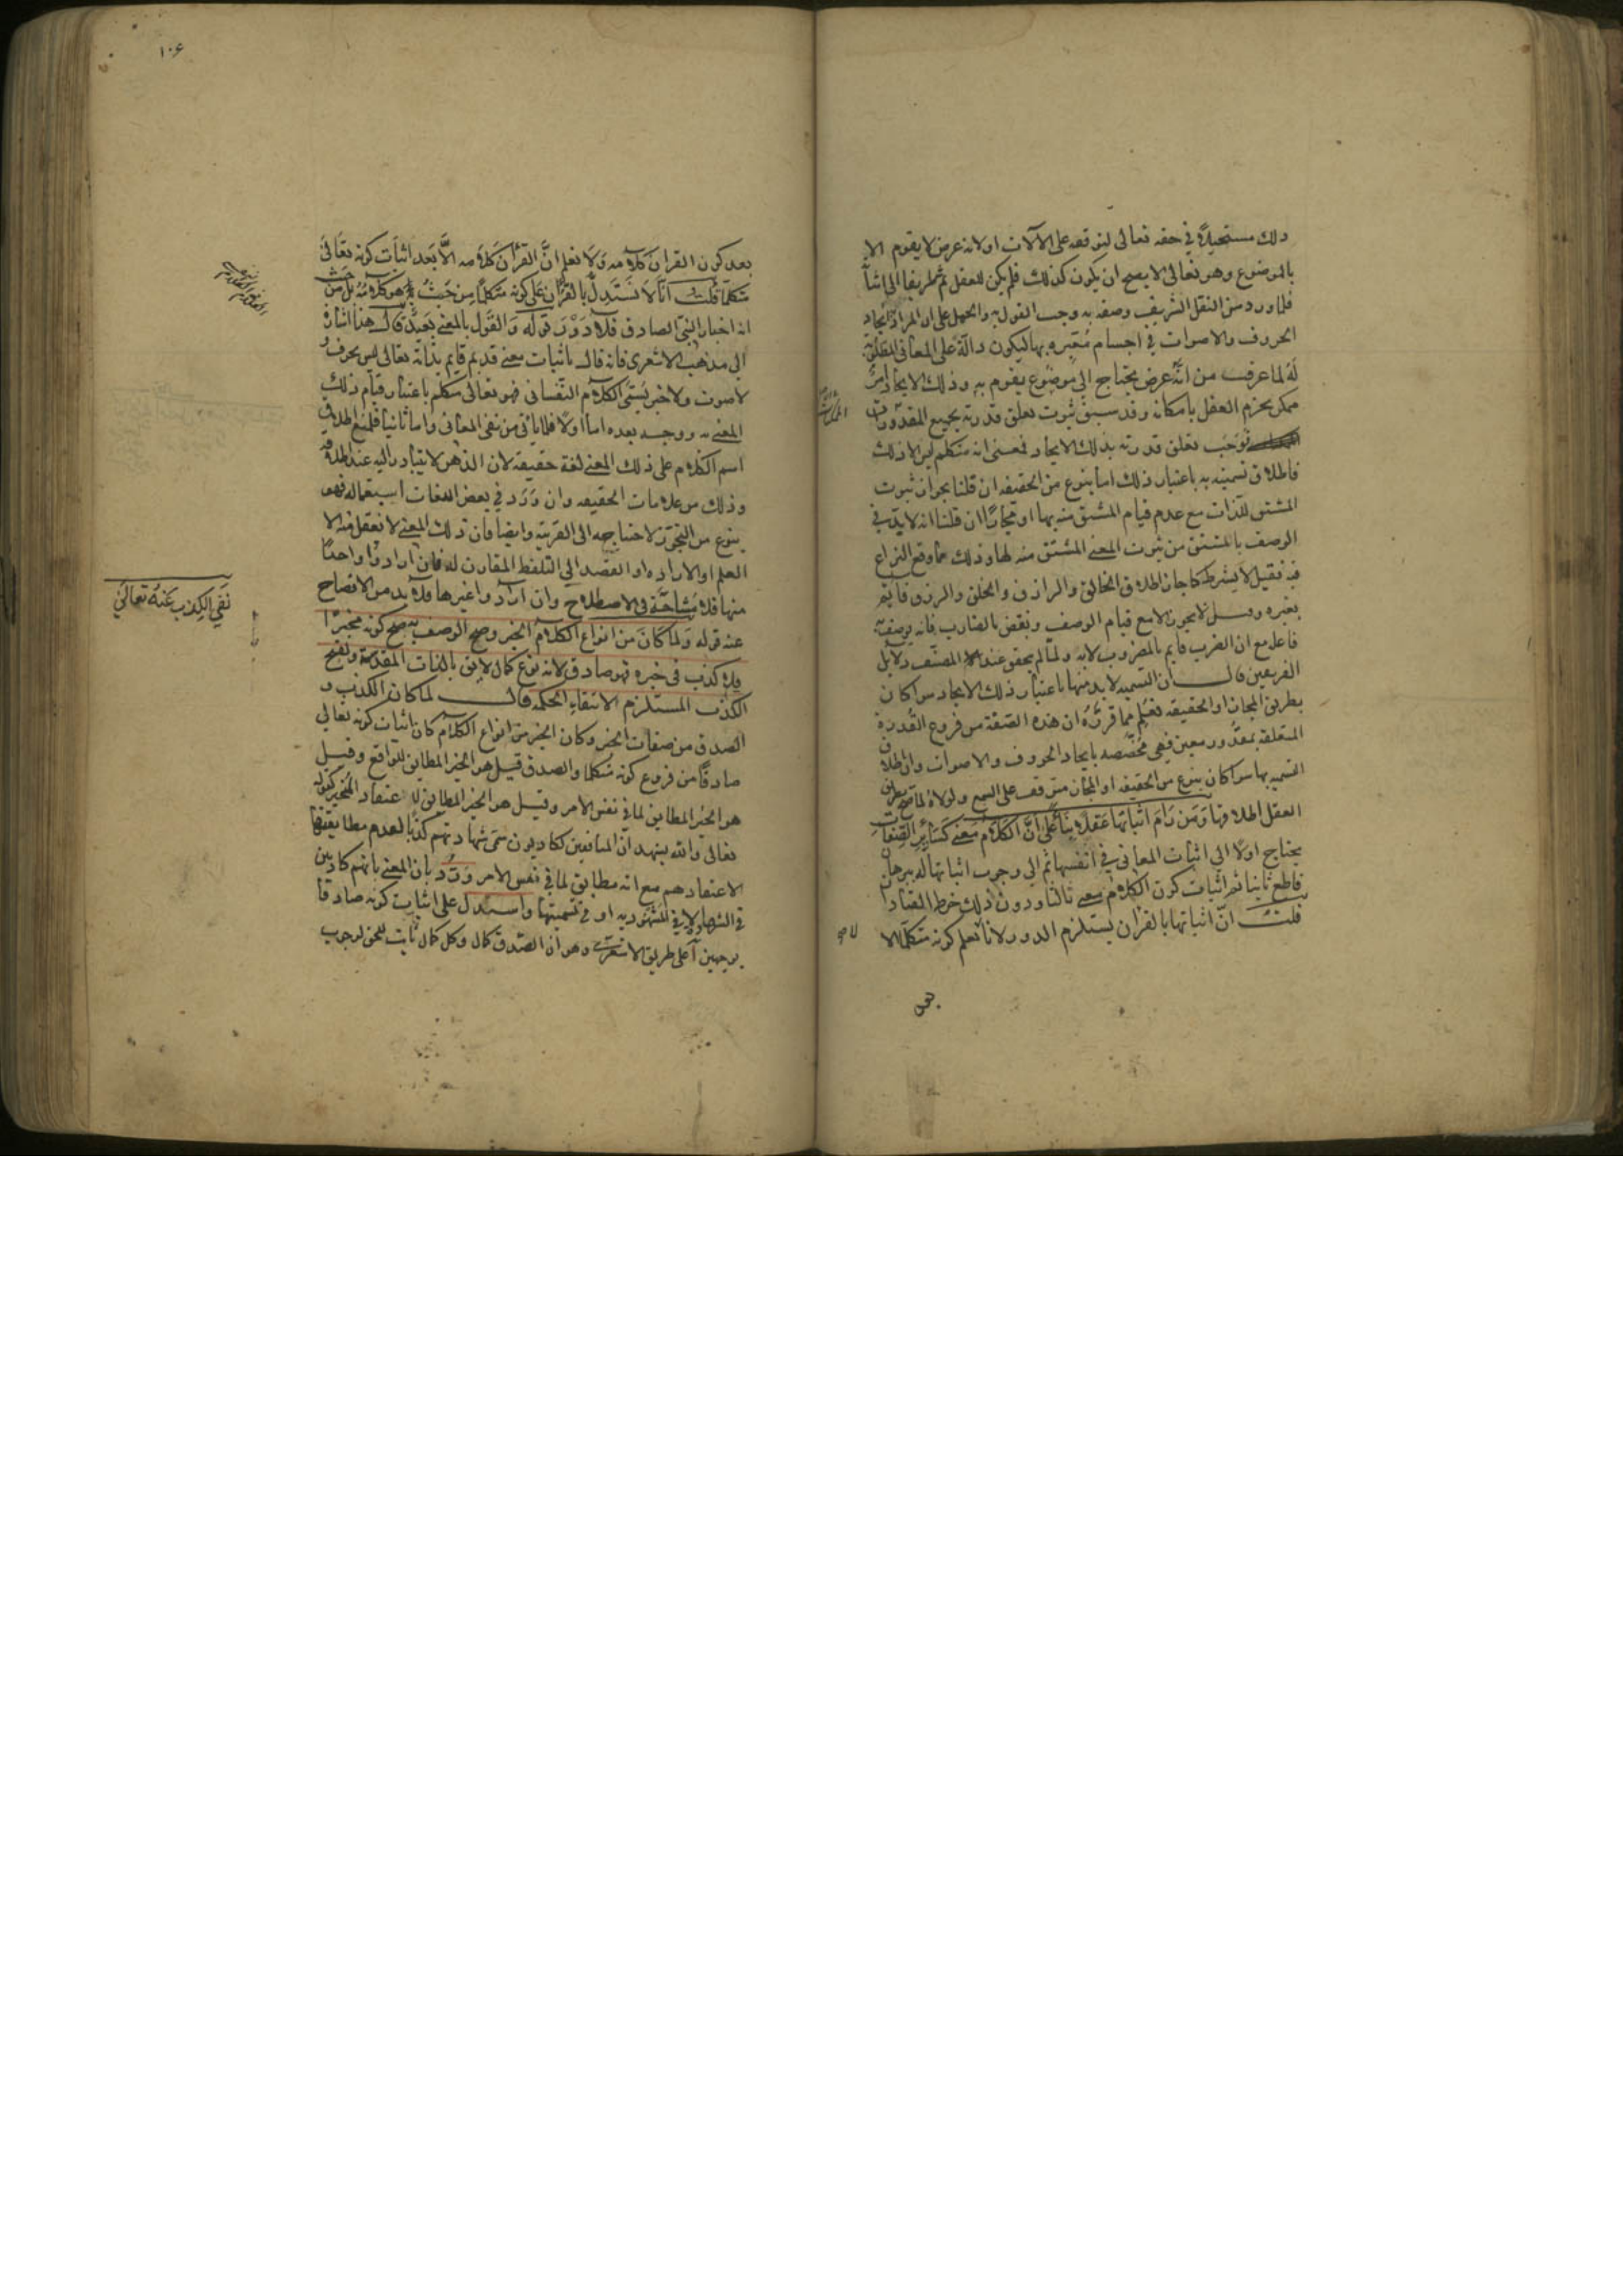 ذلك مستحيلا في حقه تعالى لتوقفه على الآلات او لانه عرض لا يقوم الا
بالموضوع وهو تعالى لا يصح ان يكون كذلك فلم يكن للعقل ثم طريقا الى اثباته
فلما ورد من النقل الشريف وصفه به وجب القول به والحمل على ان المراد ايجاد
الحروف والاصوات في اجسام معبرة بها ليكون دالة على المعاني المطلوبة
له لما عرفت من انه عرض يحتاج الى موضوع يقوم به وذلك الايجاد امر
ممكن يجزم العقل بامكانه وقد سبق ثبوت تعلق قدرته بجميع المقدورات
فوجب تعلق قدرته بذلك الايجاد فمعنى انه متكلم ليس الا ذلك
فاطلاق تسميته به باعتبار ذلك اما بنوع من الحقيقه ان قلنا بجواز ثبوت
المشتق للذات مع عدم قيام المشتق منه بها او مجازا ان قلنا انه لا بد في
الوصف بالمشتق من ثبوت المعنى المشتق منه لها وذلك مما وقع النزاع
فيه فقيل لا يشترط كما جاز اطلاق الخالق والرازق والخلق والرزق قايم
بغيره وقيل لا يجوز الا مع قيام الوصف ونقض بالضارب فانه يوصف به
فاعله مع ان الضرب قايم بالمضروب لا به ولما لم يحقق عند المصنف دلايل
الفريقين قال ان التسميه لا بد منها باعتبار ذلك الايجاد سوا كان
بطريق المجاز او الحقيقه فعلم مما قررناه ان هذه الصفة من فروع القدرة
المتعلقة بمقدور معين فهي مخصصه بايجاد الحروف والاصوات وان اطلاق
التسميه بها سوا كان بنوع من الحقيقه او المجاز متوقف على السمع ولولاه لما صح بطريق
العقل اطلاقها ومن رام اثباتها عقلا بنا على ان الكلام معنى كساير الصفات
يحتاج اولا الى اثبات المعاني في انفسها ثم الى وجوب اثباتها له ببرهان
قاطع ثانيا ثم اثبات كون الكلام معنى ثالثا ودون ذلك خرط القتاد
قلت ان اثباتها بالقران يستلزم الدور لانا نعلم كونه متكلما الا
بعد
١٠٦
بعد كون القران كلامه ولا نعلم ان القران كلامه الا بعد اثبات كونه تعالى
متكلما قلت انا لا نستدل بالقران على كونه متكلما من حيث هو كلامه بل من حيث
انه اخبار النبي الصادق فلا دور قوله والقول بالمعنى بعيد قال هذا اشارة
الى مذهب الاشعري فانه قال باثبات معنى قديم قايم بذاته تعالى ليس بحرف و
لا صوت ولا خبر يسمى الكلام النفساني فهو تعالى متكلم باعتبار قيام ذلك
المعنى به ووجه بعده اما اولا فلما ياتي من نفي المعاني واما ثانيا فلمنع اطلاق
اسم الكلام على ذلك المعنى لغة حقيقه لان الذهن لا يتبادر اليه عند اطلاقه
وذلك من علامات الحقيقه وان ورد في بعض اللغات استعماله فهو
بنوع من التجوز لاحتياجه الى القرينه وايضا فان ذلك المعنى لا نعقل منه الا
العلم او الاراده او القصد الى التلفظ المقارن له فان ارادوا واحدا
منها فلا مشاحة في الاصطلاح وان ارادوا غيرها فلا بد من الافصاح
عنه قوله ولما كان من انواع الكلام الخبر وصح الوصف به صح كونه مخبرا
فلا كذب في خبره فهو صادق لانه نوع كمال لايق بالذات المقدسة ولقبح
الكذب المستلزم لانتفايه الحكمه قال لما كان الكذب و
الصدق من صفات الخبر وكان الخبر من انواع الكلام كان اثبات كونه تعالى
صادقا من فروع كونه متكلما والصدق قيل هو الخبر المطابق للواقع وقيل
هو الخبر المطابق لما في نفس الامر وقيل هو الخبر المطابق لاعتقاد المخبر كقوله
تعالى والله يشهد ان المنافقين لكاذبون سمى شهادتهم كذبا لعدم مطابقتها
لاعتقادهم مع انه مطابق لما في نفس الامر ورد بان المعنى بانهم كاذبين
في الشهادة لا في المشهود به او في تسميتها واستدل على اثبات كونه صادقا
بوجهين آ على طريق الاشعري وهو ان الصدق كمال وكل كمال ثابت للحق لوجوب
نفي الكذب عنه تعالى